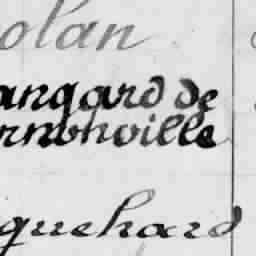 olan
angard de
rmonville
quehard